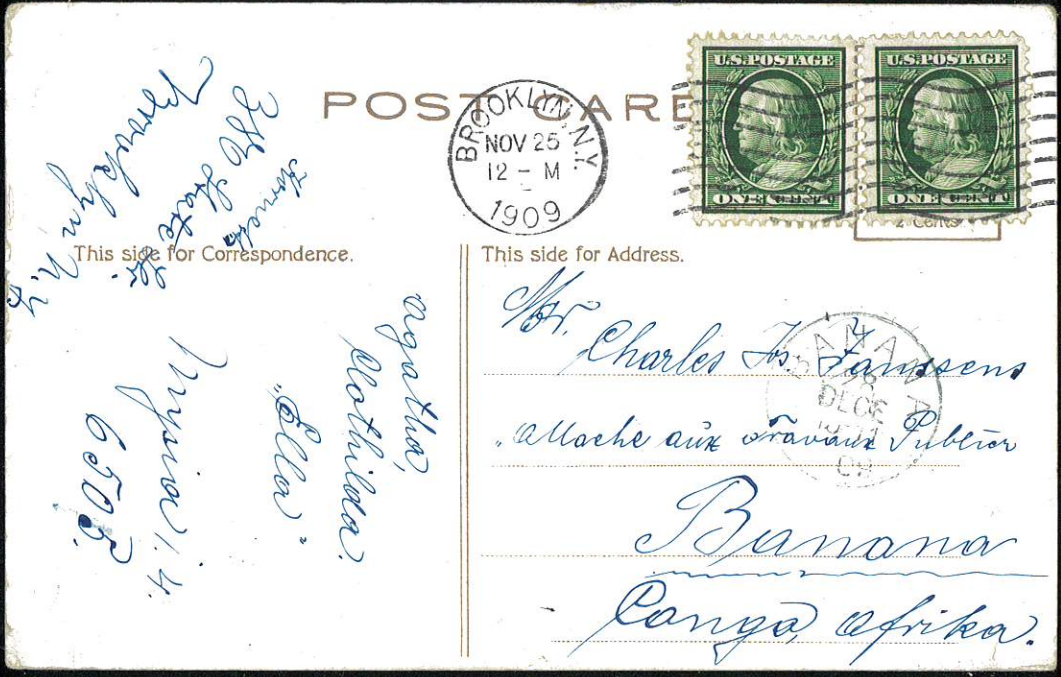 POST CARD
BROOKLYN, N.Y.
NOV 25
12 - M
1909
U.S. POSTAGE
ONE CENT
U.S. POSTAGE
ONE CENT
2 Cents
This side for Correspondence.
State St.
Brooklyn N.Y.
Agatha,
Clothilda.
"Ella"
1.4.
6505.
This side for Address.
Mr.
Charles Js. Janssens
Attache aux Travaux Publics
Banana
Congo, Afrika.
BANANA
DEC
09